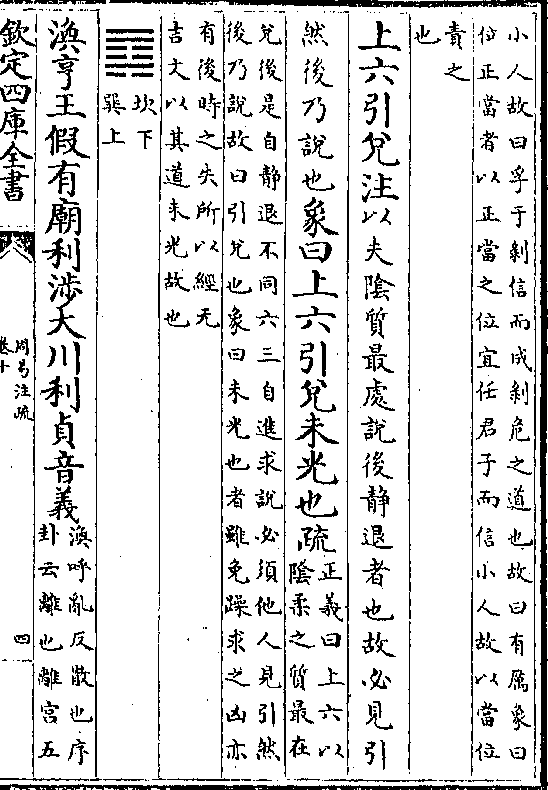 小人故曰孚于剝信而成剝危之道也故曰有厲象曰
位正當者以正當之位宜任君子而信小人故以當位
責之
也
上六引兌注以夫陰質最處說後静退者也故必見引
然後乃說也象曰上六引兌未光也疏正義曰上六以
陰柔之質最在
兌後是自静退不同六三自進求說必須他人見引然
後乃說故曰引兌也象曰未光也者雖免躁求之凶亦
有後時之失所以經无
吉文以其道未光故也
坎下
巽上
渙亨王假有廟利涉大川利貞音義渙呼亂反散也序
卦云離也離宮五
欽定四庫全書
周易注疏
卷十
四